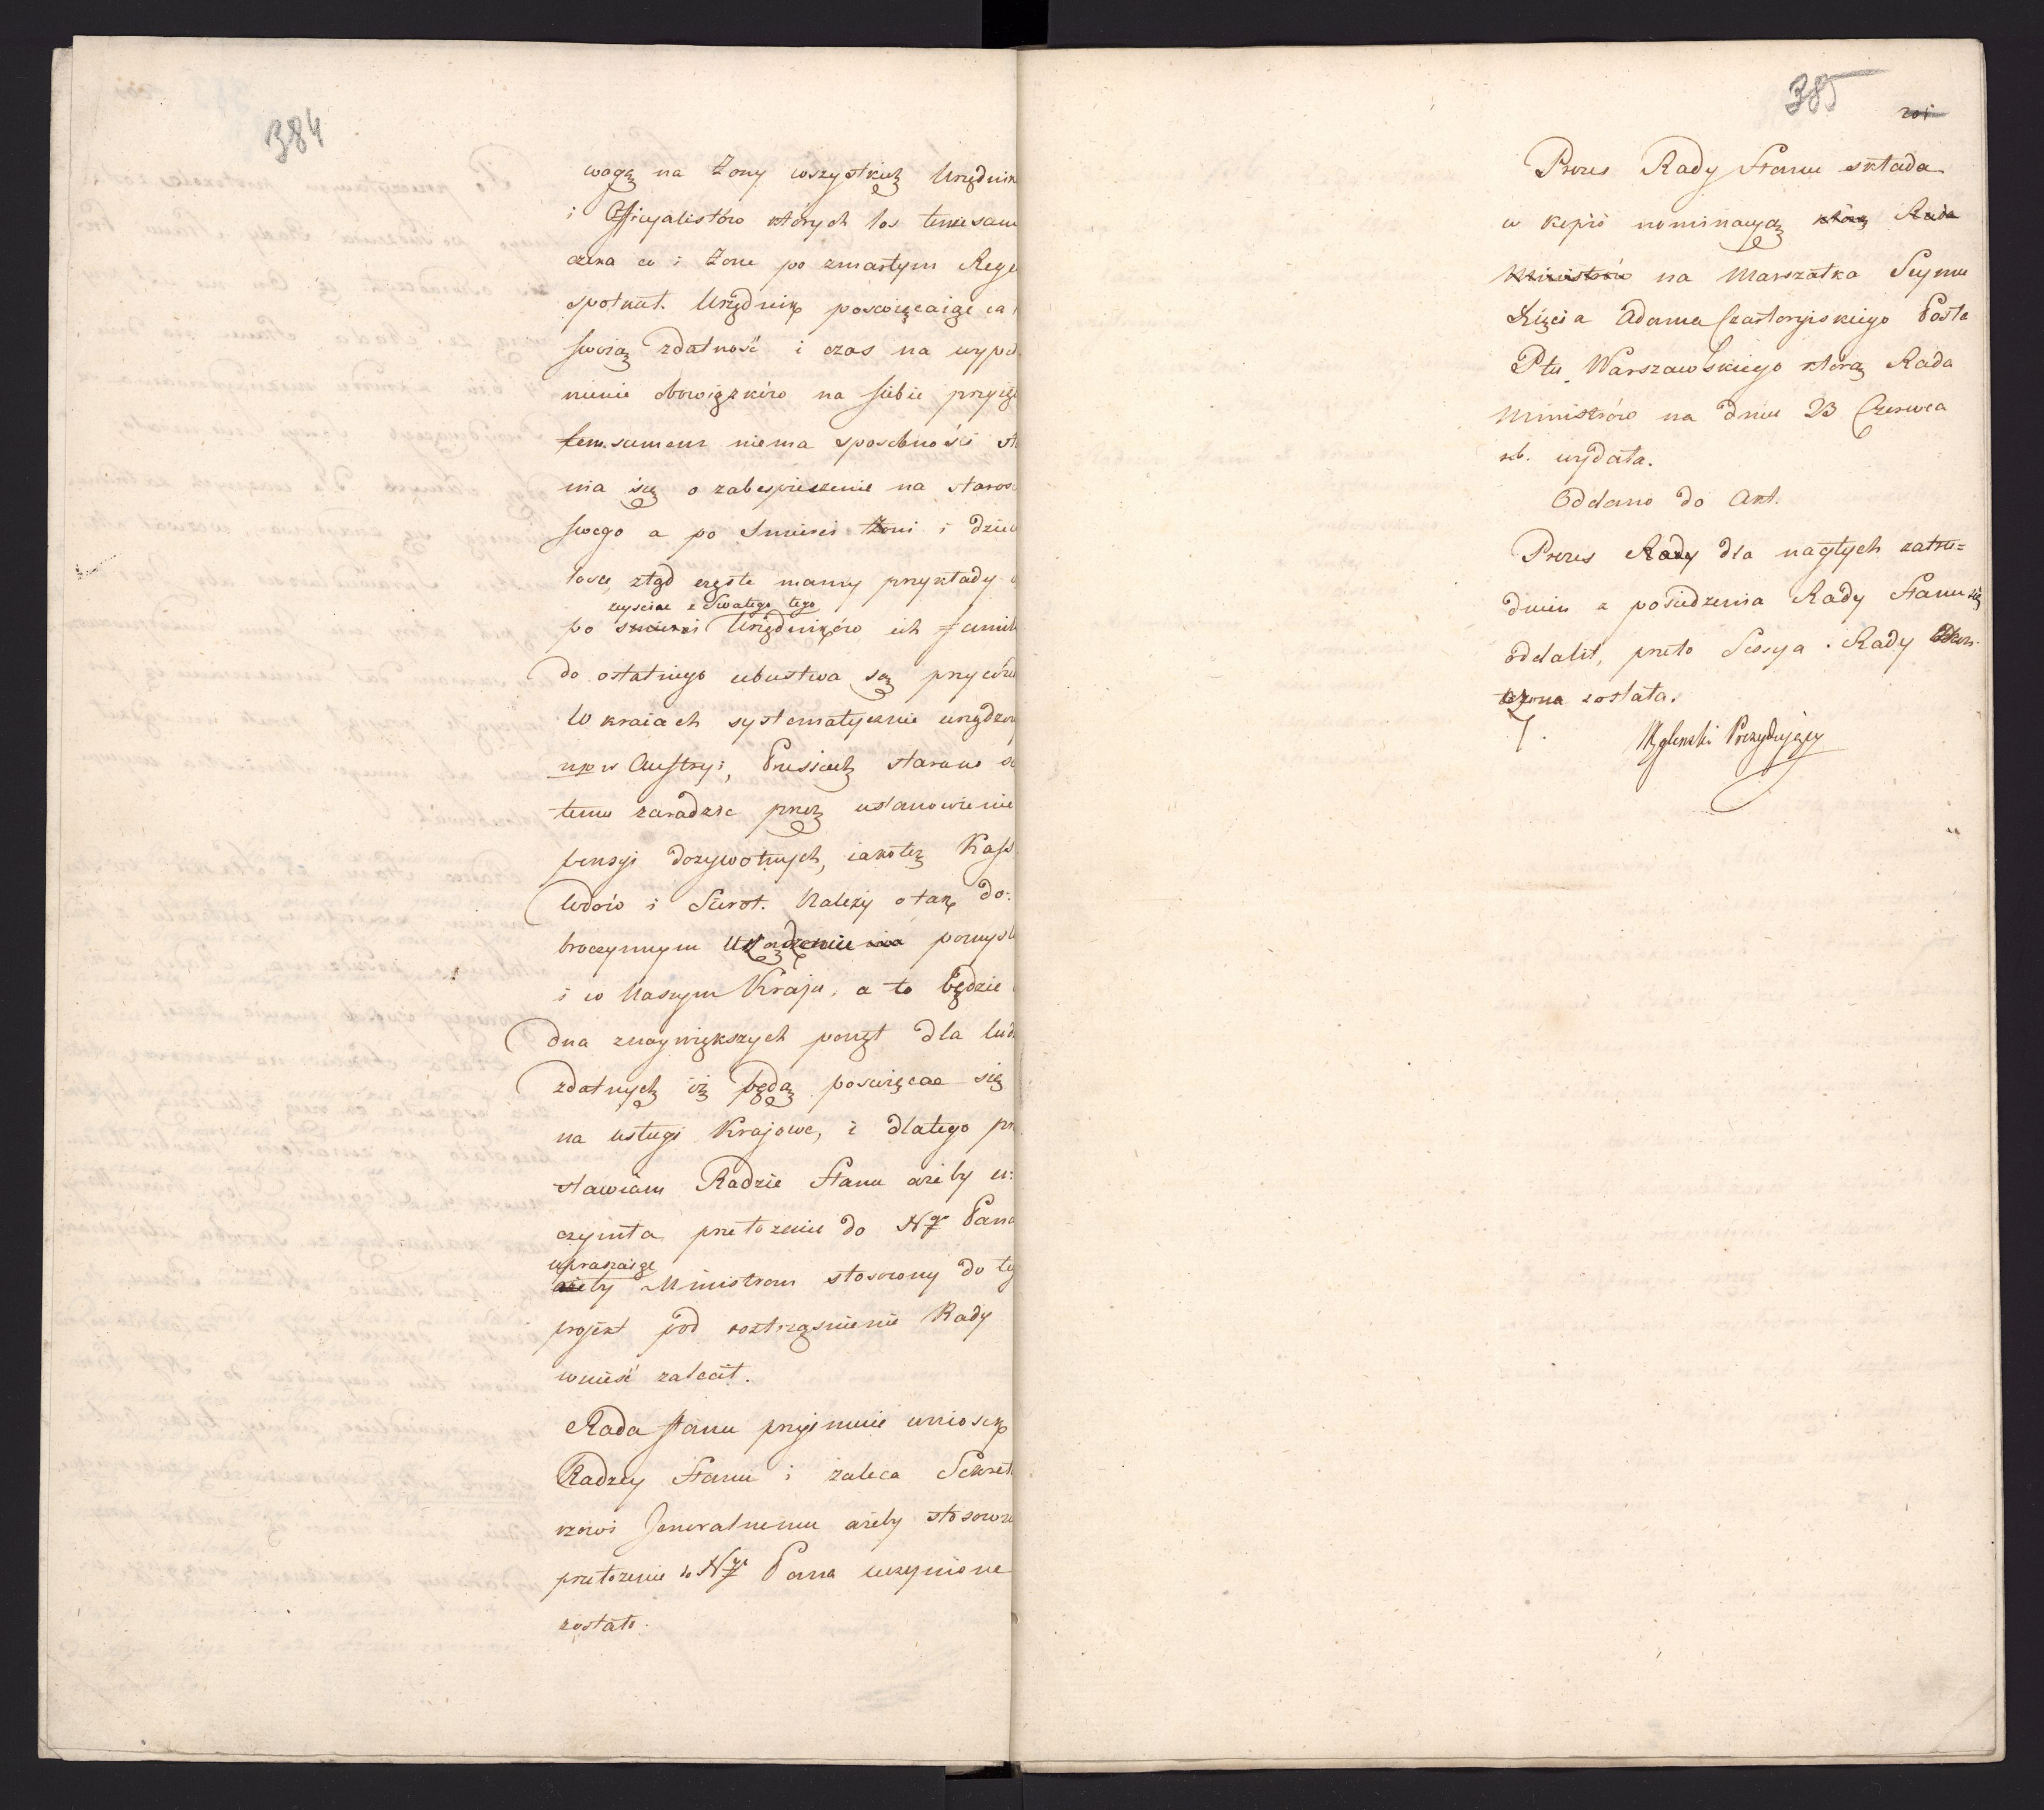 384
wagą na Żony wszystkich Urzędnik
i Officyalistów których los tenże sam
czeka co i Żonę po zmarłym Rege
spotkał. Urzędnik poswięcaiąc ca
swoią zdatność i czas na wypeł
nienie obowiązków na siebie przyję
temsamem niema sposobności sta
nia się o zabespieczenie na starość
swego a po Smierci Żoni i dziec
losu, ztąd częste mamy przykłady
zeyściu z Swiatego tego
po smierci Urzędników ich familie
do ostatniego ubustwa są przywie
W kraiach systematycznie urządzon
np w Austryi, Prusiech starano s
temu zaradzic przez ustanowienie
pensyi dożywotnych, iakoteż Kass
Wdów i Sierot. Należy o tak do-
broczynnym Urządzeniu pomysl
i w Naszym Kraju, a to będzie
dna znaywiększych ponęt dla lud
zdatnych iż będą poswięcac się
na usługi Krajowe, i dlatego prze
stawiam Radzie Stanu ażeby u:
czyniła przełożenie do Ngo Pana
upraszaiąc
ażeby Ministrom stosowny do te
projekt pod roztrząśnienie Rady
wnieść zalecił.
Rada stanu przyimuie wniosek
Radzcy Stanu i zaleca Sekret
rzowi Jeneralnemu ażeby stosowne
przełożenie do Ngo Pana uczynione
zostało.
385
201
Prezes Rady Stanu składa
w kopii nominacyą którą Rada
Ministrów na Marszałka Seymu
Xięcia Adama Czartoryiskiego Posła
Ptu Warszawskiego którą Rada
Ministrów na dniu 23 Czerwca
rb. wydała.
Oddano do Akt.
Prezes Rady dla nagłych zatru=
dnień z posiedzenia Rady Stanu się
oddalił, przeto Sessya Rady
czona została.
Prezydujący